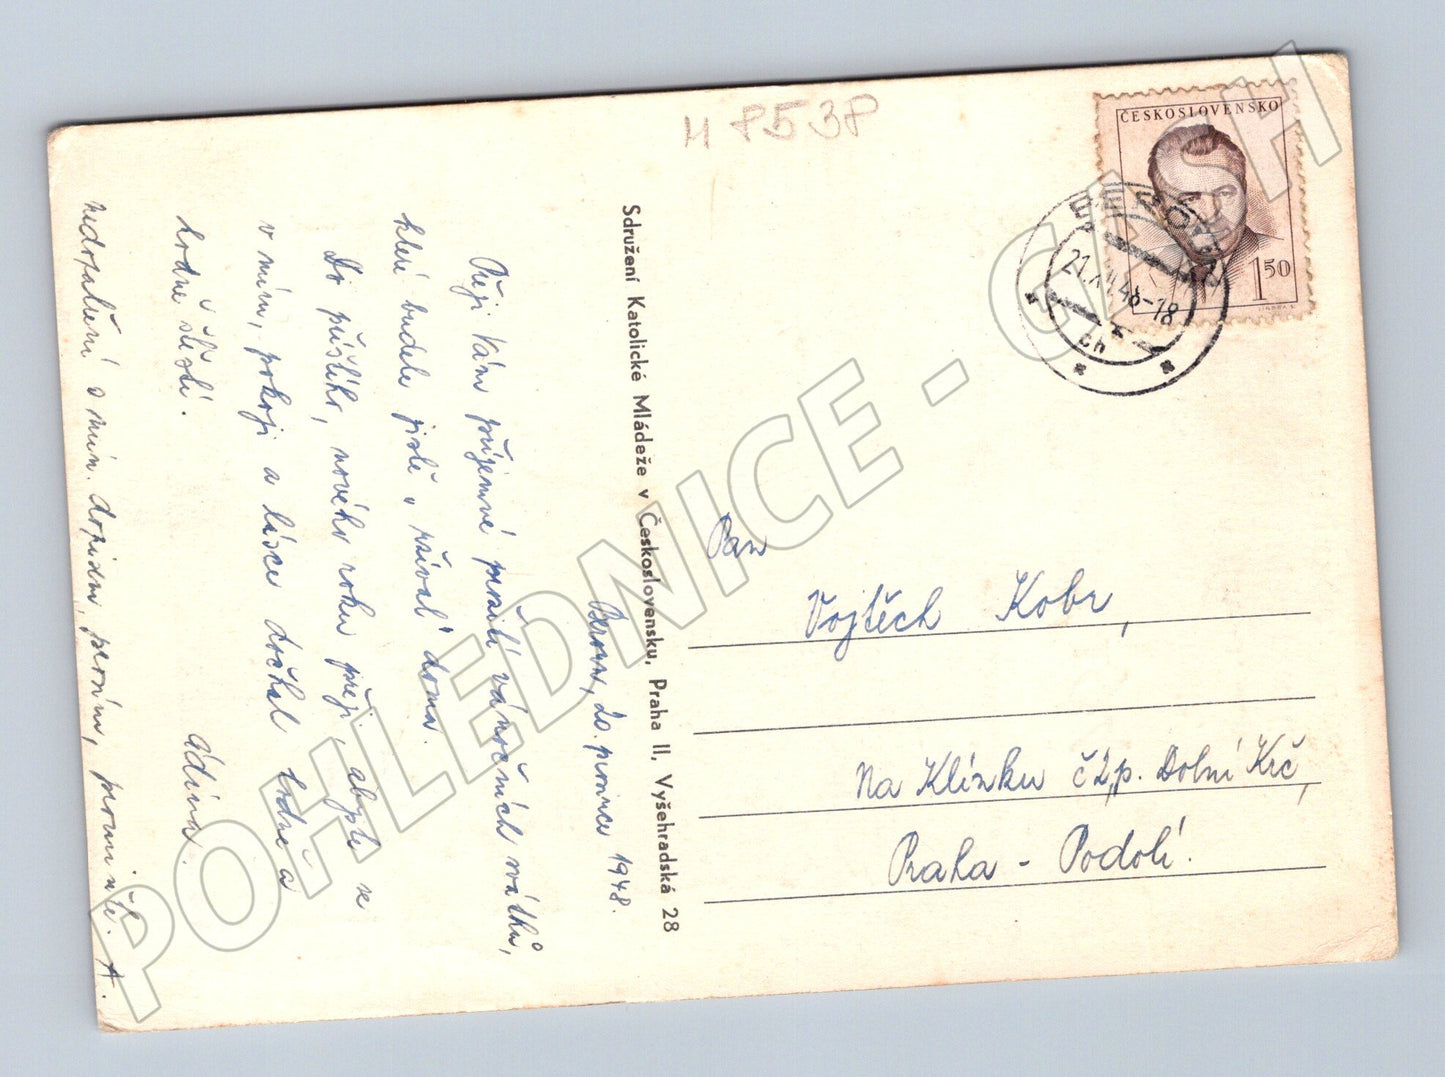 H 8538
ČESKOSLOVENSKO
1 50
BEROUN
21.XII.48-18
Sdružení Katolické Mládeže v Československu, Praha II, Vyšehradská 28
Beroun, 20. prosince 1948.
Přeji Vám příjemné prožití vánočních svátků,
které budete jistě „ "doma.
Do příštího, nového roku přeji, abyste se
v míru, pokoji a lásce dočkal hodně a
hodně štěstí.
Adina.
Pan
Vojtěch Kobr,
Na Klínku č 2,p. Dolní Krč,
Praha - Podolí.
POHLEDNICE - GASH